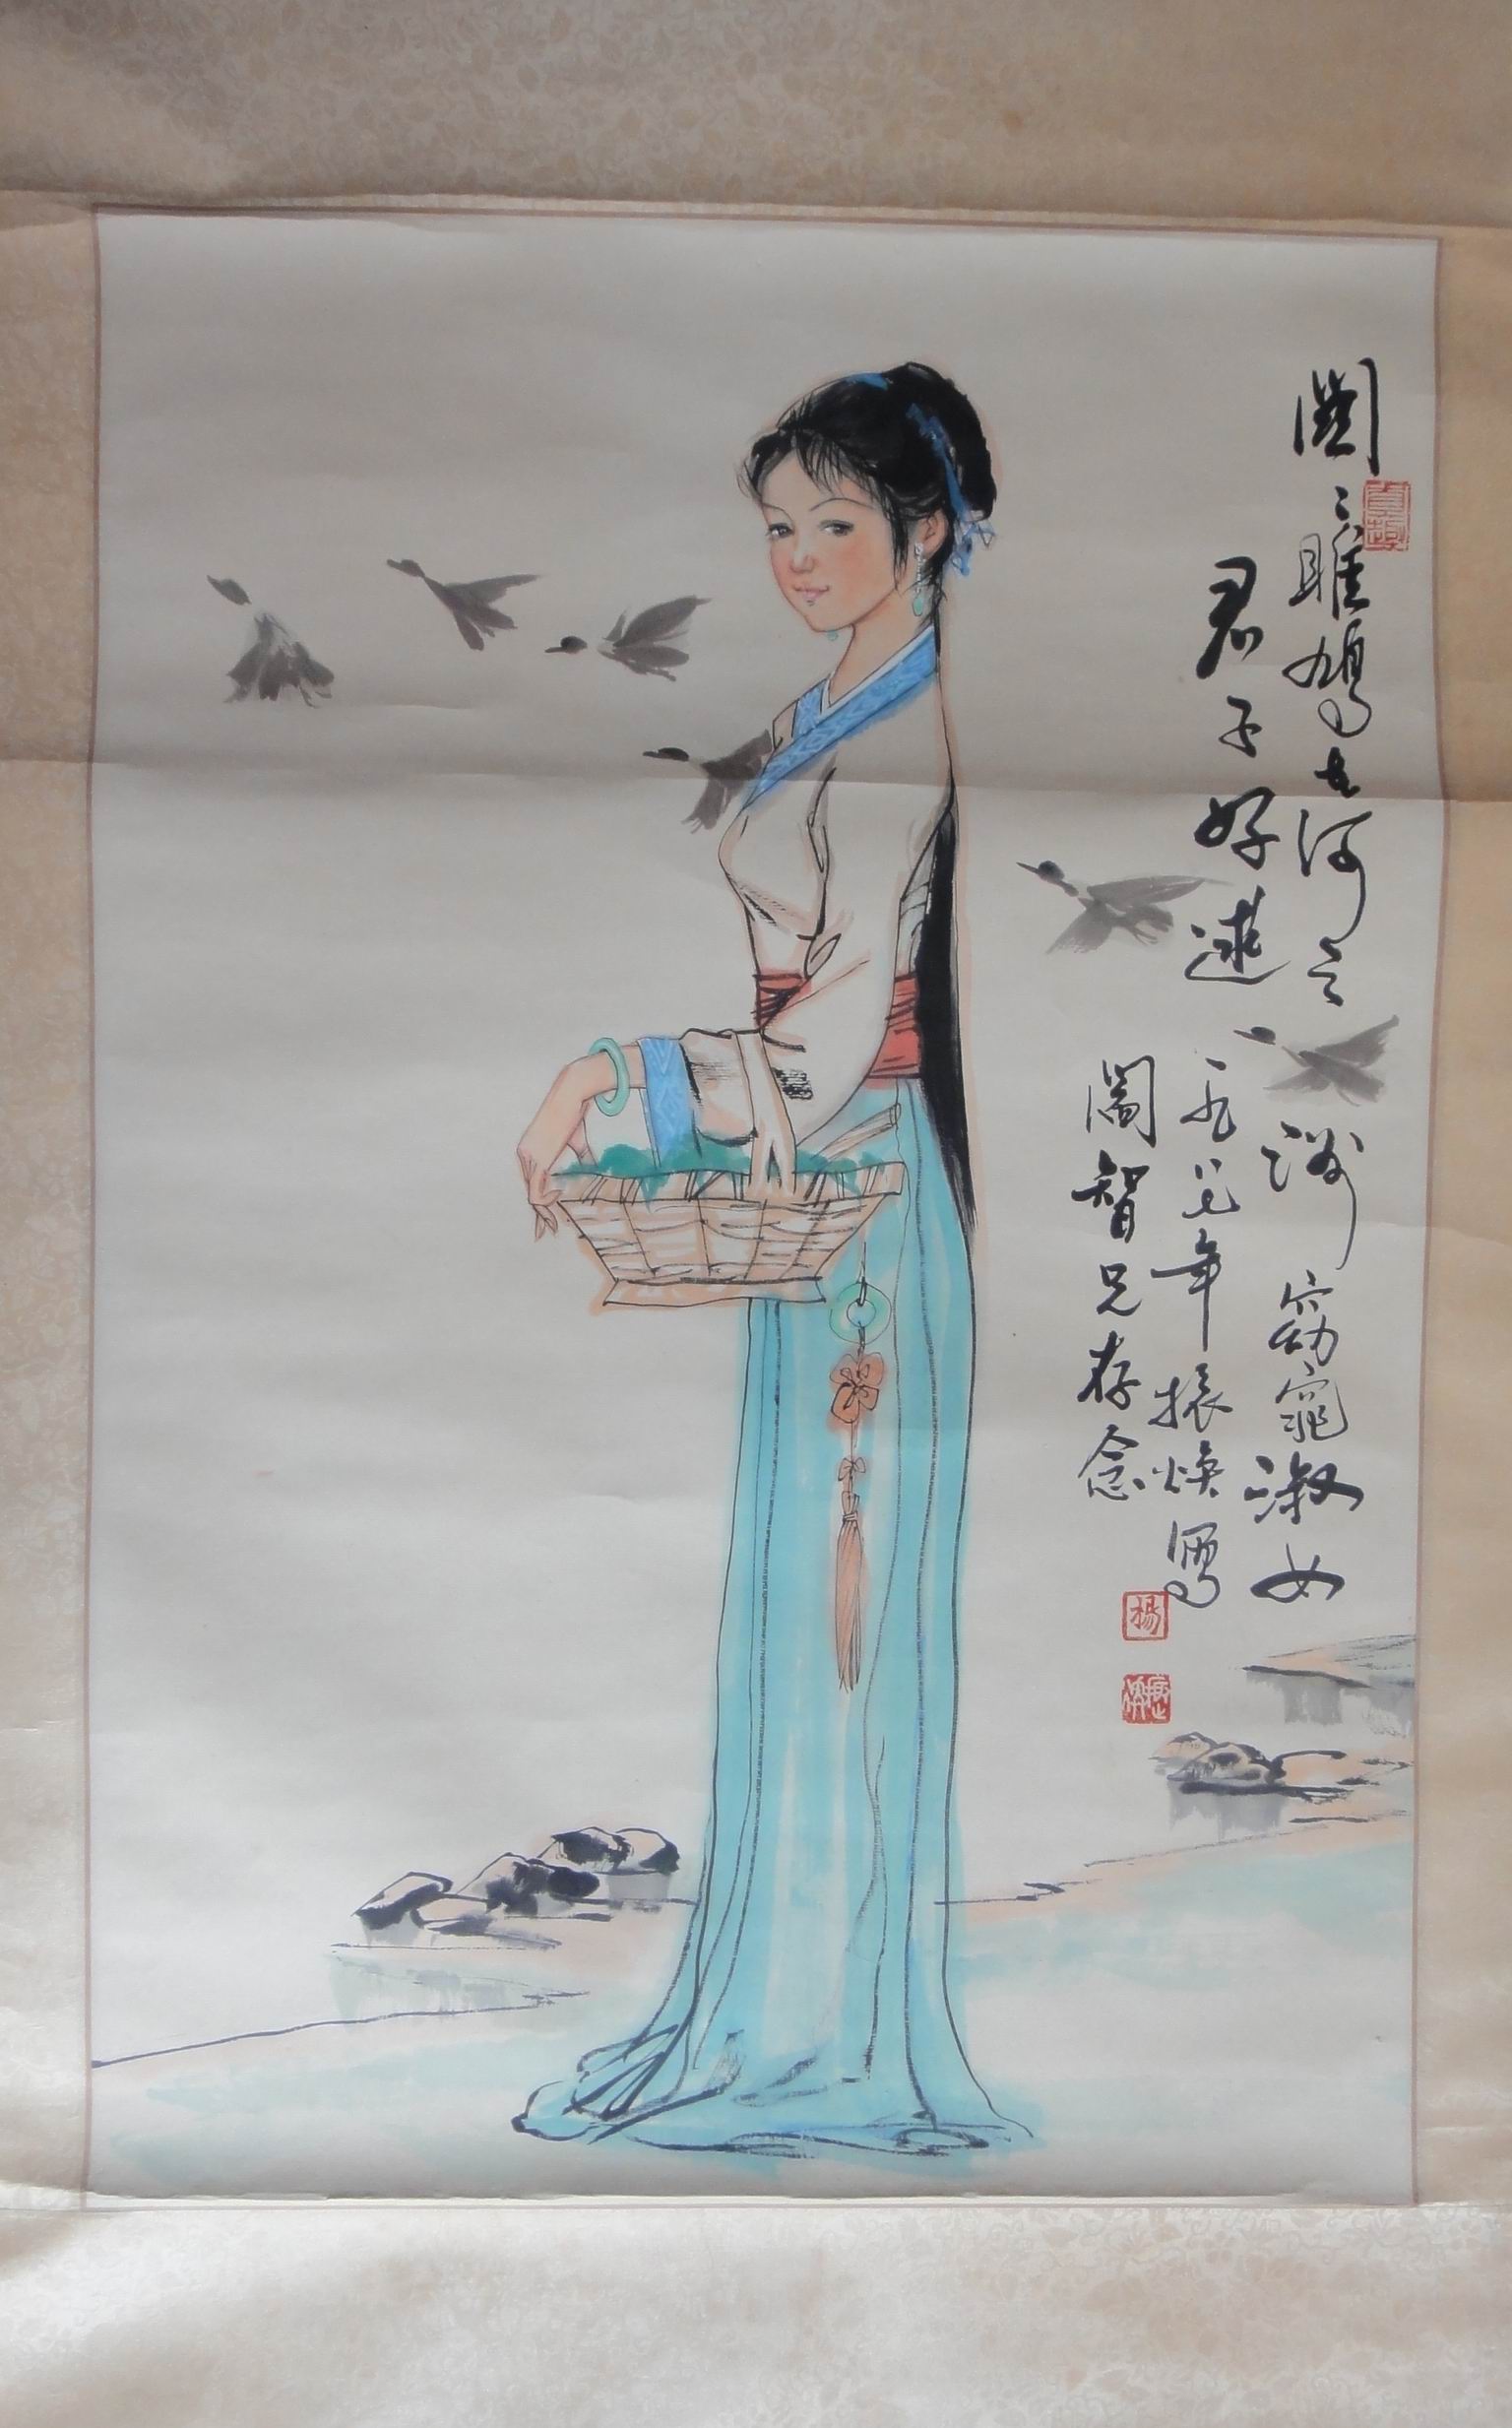 關〻雎鳩在河之洲窈窕淑女
君子好逑
一九八七年振煥寫
閣智兄存念
楊